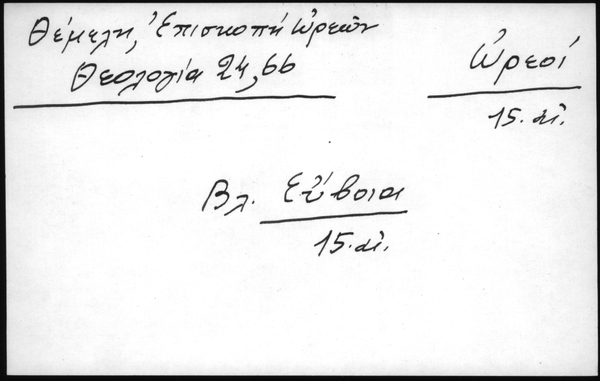 Θέμελη, Ἐπισκοπή Ὠρεῶν
Θεολογία 24, 66
Ὠρεοί
15. αἰ.
Βλ. Εὔβοια
15. αἰ.